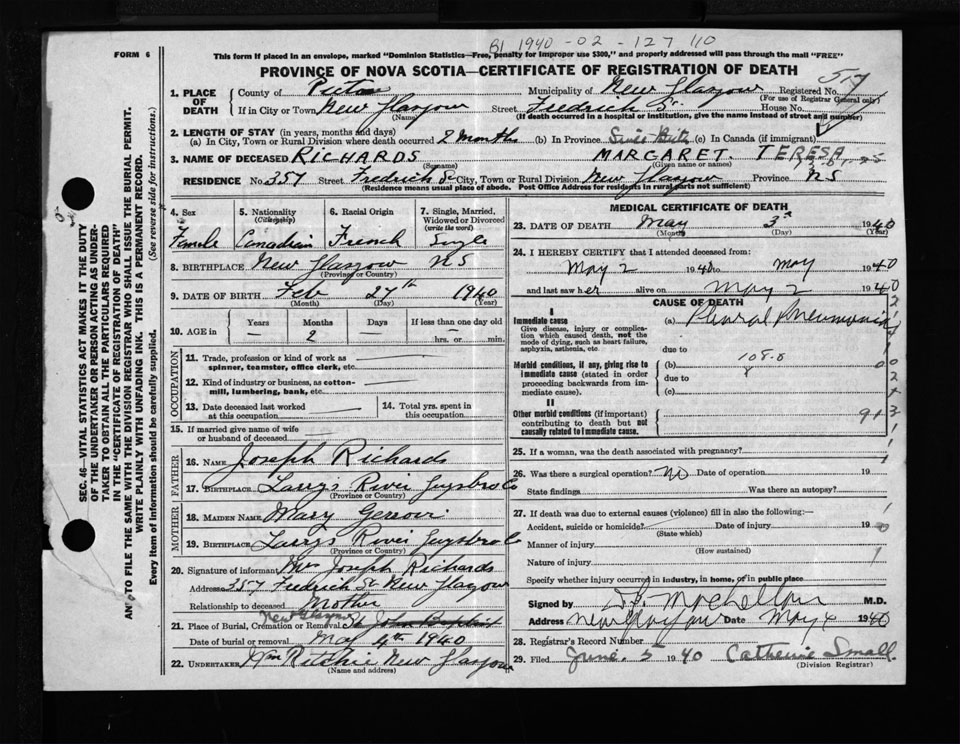 1940-02-127110
FORM 6
This form if placed in an envelope, marked "Dominion Statistics—Free, penalty for improper use $300," and properly addressed will pass through the mail "FREE"
PROVINCE OF NOVA SCOTIA—CERTIFICATE OF REGISTRATION OF DEATH
1. PLACE OF DEATH
County of Pictou Municipality of New Glasgow Registered No.
(For use of Registrar General only)
If in City or Town New Glasgow Street Fredrich St House No.
(Name) (If death occurred in a hospital or institution, give the name instead of street and number)
2. LENGTH OF STAY (in years, months and days)
(a) In City, Town or Rural Division where death occurred 2 months (b) In Province Since Birth (c) In Canada (if immigrant)
3. NAME OF DECEASED RICHARDS MARGARET. TERESA
(Surname) (Given name or names)
RESIDENCE No. 357 Street Fredrich St City, Town or Rural Division New Glasgow Province NS
(Residence means usual place of abode. Post Office Address for residents in rural parts not sufficient)
4. Sex 5. Nationality (Citizenship) 6. Racial Origin 7. Single, Married, Widowed or Divorced (write the word)
Female Canadian French Single
8. BIRTHPLACE New Glasgow NS
(Province or Country)
9. DATE OF BIRTH Feb 27th 1940
(Month) (Day) (Year)
10. AGE in Years Months Days If less than one day old
— 2 — hrs. or min.
OCCUPATION
11. Trade, profession or kind of work as spinner, teamster, office clerk, etc.
12. Kind of industry or business, as cotton-mill, lumbering, bank, etc.
13. Date deceased last worked at this occupation
14. Total yrs. spent in this occupation
15. If married give name of wife or husband of deceased
FATHER
16. NAME Joseph Richards
17. BIRTHPLACE Larrys River Guysbro Co
(Province or Country)
MOTHER
18. MAIDEN NAME Mary
19. BIRTHPLACE Larrys River Guysbro Co
(Province or Country)
20. Signature of informant Mrs Joseph Richards
Address 357 Fredrich St New Glasgow
Relationship to deceased Mother
21. Place of Burial, Cremation or Removal New Glasgow St John Baptist
Date of burial or removal May 4th 1940
22. UNDERTAKER Wm Ritchie New Glasgow
(Name and address)
MEDICAL CERTIFICATE OF DEATH
23. DATE OF DEATH May 3rd 1940
(Month) (Day) (Year)
24. I HEREBY CERTIFY that I attended deceased from:
May 2 1940 to May 1940
and last saw her alive on May 2 1940
CAUSE OF DEATH
I
Immediate cause (a) Pleural Pneumonia
Give disease, injury or complication which caused death, not the mode of dying, such as heart failure, asphyxia, asthenia, etc.
due to
Morbid conditions, if any, giving rise to immediate cause (stated in order proceeding backwards from immediate cause).
(b)
due to
(c)
II
Other morbid conditions (if important) contributing to death but not causally related to immediate cause.
25. If a woman, was the death associated with pregnancy?
26. Was there a surgical operation? No Date of operation 19
State findings Was there an autopsy?
27. If death was due to external causes (violence) fill in also the following:—
Accident, suicide or homicide? Date of injury 19
(State which)
Manner of injury
(How sustained)
Nature of injury
Specify whether injury occurred in industry, in home, or in public place
Signed by M.D.
Address New Glasgow Date May 4 1940
28. Registrar's Record Number
29. Filed June 5 1940 Catherine Small
(Division Registrar)
SEC. 46—VITAL STATISTICS ACT MAKES IT THE DUTY
OF THE UNDERTAKER OR PERSON ACTING AS UNDER-
TAKER TO OBTAIN ALL THE PARTICULARS REQUIRED
IN THE "CERTIFICATE OF REGISTRATION OF DEATH"
AND TO FILE THE SAME WITH THE DIVISION REGISTRAR WHO SHALL ISSUE THE BURIAL PERMIT.
WRITE PLAINLY WITH UNFADING INK. THIS IS A PERMANENT RECORD.
Every item of information should be carefully supplied. (See reverse side for instructions.)